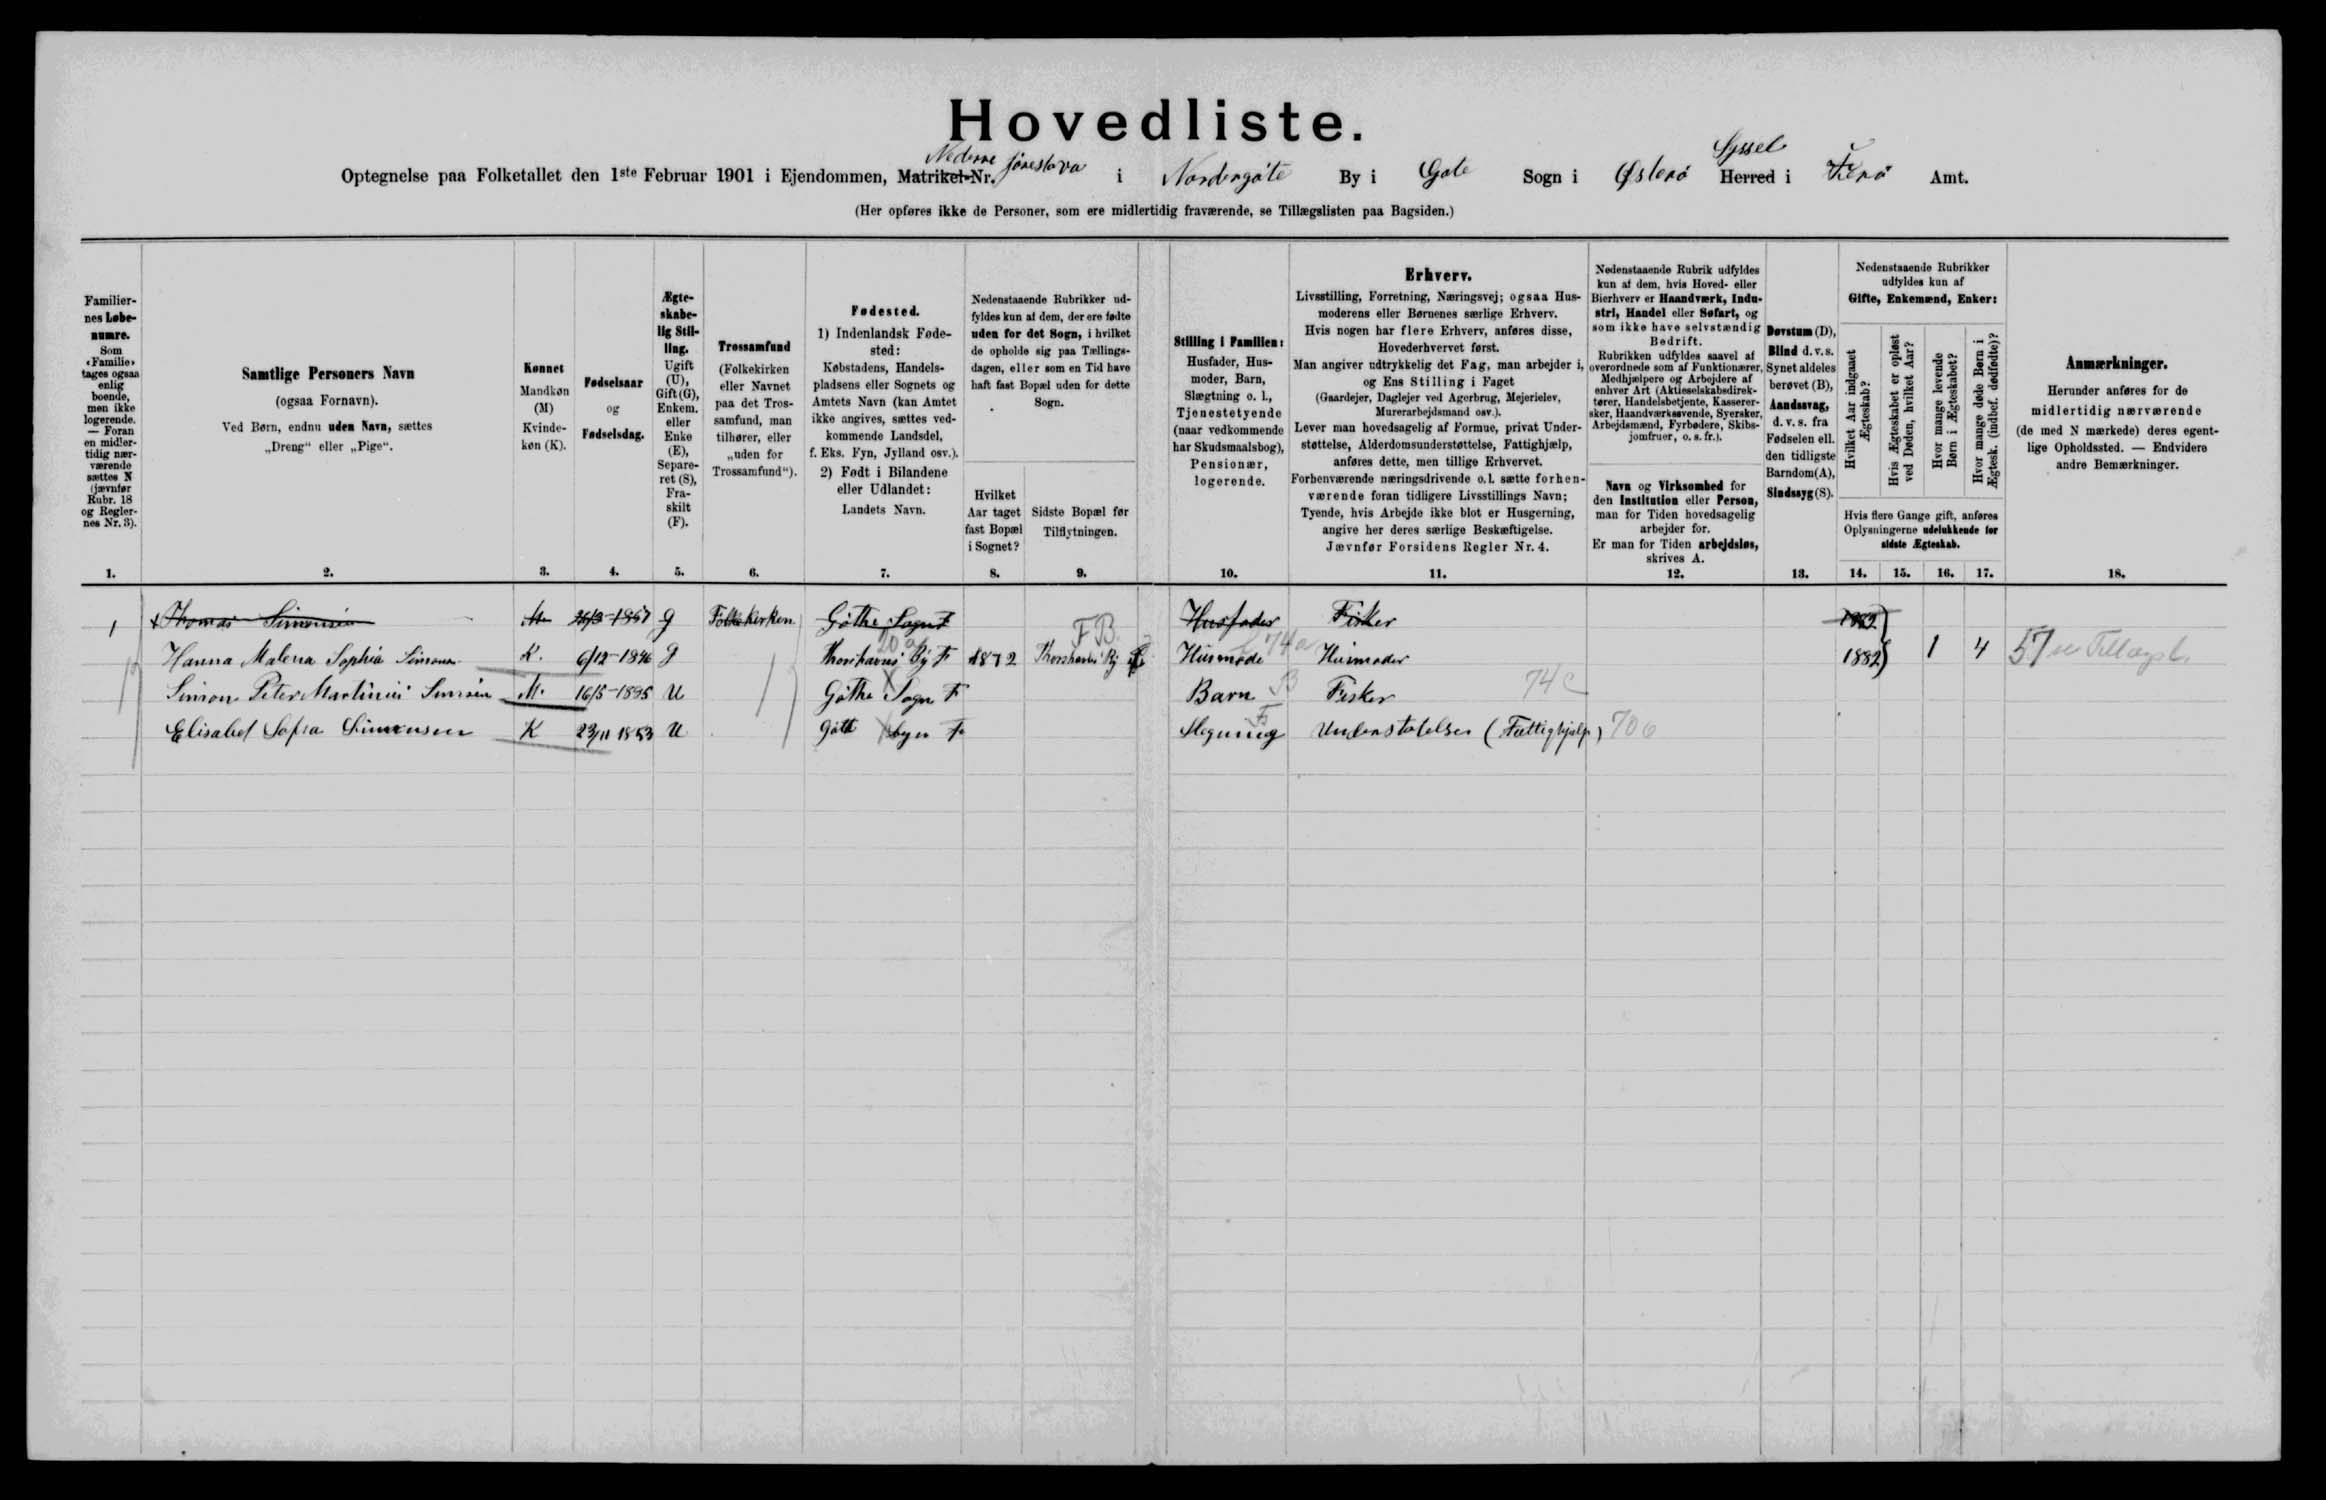 Hovedliste.
Optegnelse paa Folketallet den 1ste Februar 1901 i Ejendommen, Matrikel-Nr. Nederne i Nordergöte By i Gøte Sogn i Østerø Herred Syssel i Færø Amt.
(Her opføres ikke de Personer, som ere midlertidig fraværende, se Tillægslisten paa Bagsiden.)
Familier-
nes Løbe-
numre.
Som
«Familie»
tages ogsaa
enlig
boende,
men ikke
logerende.
— Foran
en midler-
tidig nær-
værende
sættes N
(jævnfør
Rubr. 18
og Regler-
nes Nr. 3).
1.
Samtlige Personers Navn
(ogsaa Fornavn).
Ved Børn, endnu uden Navn, sættes
„Dreng“ eller „Pige“.
2.
Kønnet
Mandkøn
(M)
Kvinde-
køn (K).
3.
Fødselsaar
og
Fødselsdag.
4.
Ægte-
skabe-
lig Stil-
ling.
Ugift
(U),
Gift (G),
Enkem.
eller
Enke
(E),
Separe-
ret (S),
Fra-
skilt
(F).
5.
Trossamfund
(Folkekirken
eller Navnet
paa det Tros-
samfund, man
tilhører, eller
„uden for
Trossamfund“).
6.
Fødested.
1) Indenlandsk Føde-
sted:
Købstadens, Handels-
pladsens eller Sognets og
Amtets Navn (kan Amtet
ikke angives, sættes ved-
kommende Landsdel,
f. Eks. Fyn, Jylland osv.).
2) Født i Bilandene
eller Udlandet:
Landets Navn.
7.
Nedenstaaende Rubrikker ud-
fyldes kun af dem, der ere fødte
uden for det Sogn, i hvilket
de opholde sig paa Tællings-
dagen, eller som en Tid have
haft fast Bopæl uden for dette
Sogn.
Hvilket
Aar taget
fast Bopæl
i Sognet?
8.
Sidste Bopæl før
Tilflytningen.
9.
Stilling i Familien:
Husfader, Hus-
moder, Barn,
Slægtning o. l.,
Tjenestetyende
(naar vedkommende
har Skudsmaalsbog),
Pensionær,
logerende.
10.
Erhverv.
Livsstilling, Forretning, Næringsvej; ogsaa Hus-
moderens eller Børnenes særlige Erhverv.
Hvis nogen har flere Erhverv, anføres disse,
Hovederhvervet først.
Man angiver udtrykkelig det Fag, man arbejder i,
og Ens Stilling i Faget
(Gaardejer, Daglejer ved Agerbrug, Mejerielev,
Murerarbejdsmand osv.).
Lever man hovedsagelig af Formue, privat Under-
støttelse, Alderdomsunderstøttelse, Fattighjælp,
anføres dette, men tillige Erhvervet.
Forhenværende næringsdrivende o. l. sætte forhen-
værende foran tidligere Livsstillings Navn;
Tyende, hvis Arbejde ikke blot er Husgerning,
angive her deres særlige Beskæftigelse.
Jævnfør Forsidens Regler Nr. 4.
11.
Nedenstaaende Rubrik udfyldes
kun af dem, hvis Hoved- eller
Bierhverv er Haandværk, Indu-
stri, Handel eller Søfart, og
som ikke have selvstændig
Bedrift.
Rubrikken udfyldes saavel af
overordnede som af Funktionærer,
Medhjælpere og Arbejdere af
enhver Art (Aktieselskabsdirek-
tører, Handelsbetjente, Kasserer-
sker, Haandværkssvende, Syersker,
Arbejdsmænd, Fyrbødere, Skibs-
jomfruer, o. s. fr.).
Navn og Virksomhed for
den Institution eller Person,
man for Tiden hovedsagelig
arbejder for.
Er man for Tiden arbejdsløs,
skrives A.
12.
Døvstum (D),
Blind d. v. s.
Synet aldeles
berøvet (B),
Aandssvag,
d. v. s. fra
Fødselen ell.
den tidligste
Barndom (A),
Sindssyg (S).
13.
Nedenstaaende Rubrikker
udfyldes kun af
Gifte, Enkemænd, Enker:
Hvilket Aar indgaaet
Ægteskab?
Hvis Ægteskabet er opløst
ved Døden, hvilket Aar?
Hvor mange levende
Børn i Ægteskabet?
Hvor mange døde Børn i
Ægtesk. (indbef. dødfødte)?
Hvis flere Gange gift, anføres
Oplysningerne udelukkende for
sidste Ægteskab.
14. 15. 16. 17.
Anmærkninger.
Herunder anføres for de
midlertidig nærværende
(de med N mærkede) deres egent-
lige Opholdssted. — Endvidere
andre Bemærkninger.
18.
1 Thomas Simonsen M G Folkekirken Göthe Sogn F Husfader Fisker 1882
Hanna Malena Sophia Simonsen K. 6/12-1846 G Thorshavns By F 1872 Thorshavns By Husmode Husmoder 1882 1 4 57 se Tillægsl.
Simon Peter Martinus M. 16/5-1885 U Göthe Sogn F Barn Fisker 74c
Elisabet Sofia Simonsen K 23/11 1853 U Göth Sogn F Understøtelse (Fattighjælp)